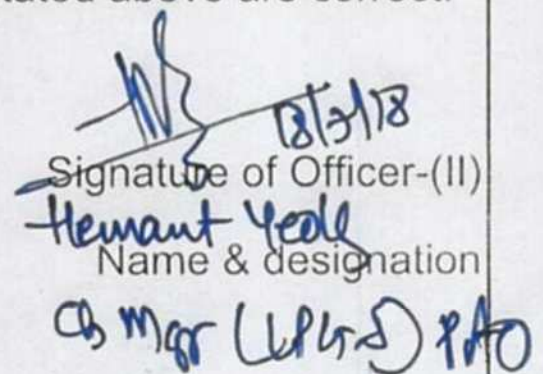 tated above are correct.
18/7/18
Signature of Officer-(II)
Hemant
Name & designation
Ch Mgr (LPG-S) PAO